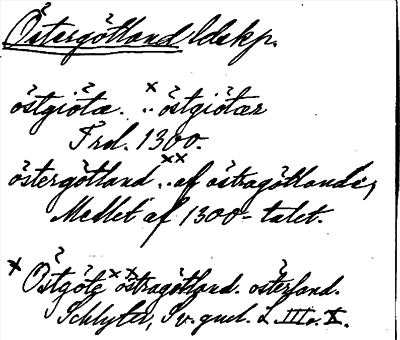 Östergötland ldskp.
östgiötæ. ˣ.. östgiötær
Frd. 1300.
östergötland ˣˣ.. af östragötlande,
Medlet af 1300-talet.
ˣ Östgöte ˣˣ östragötland. österland.
Schlyter, Sv. gml. L. III o. X.